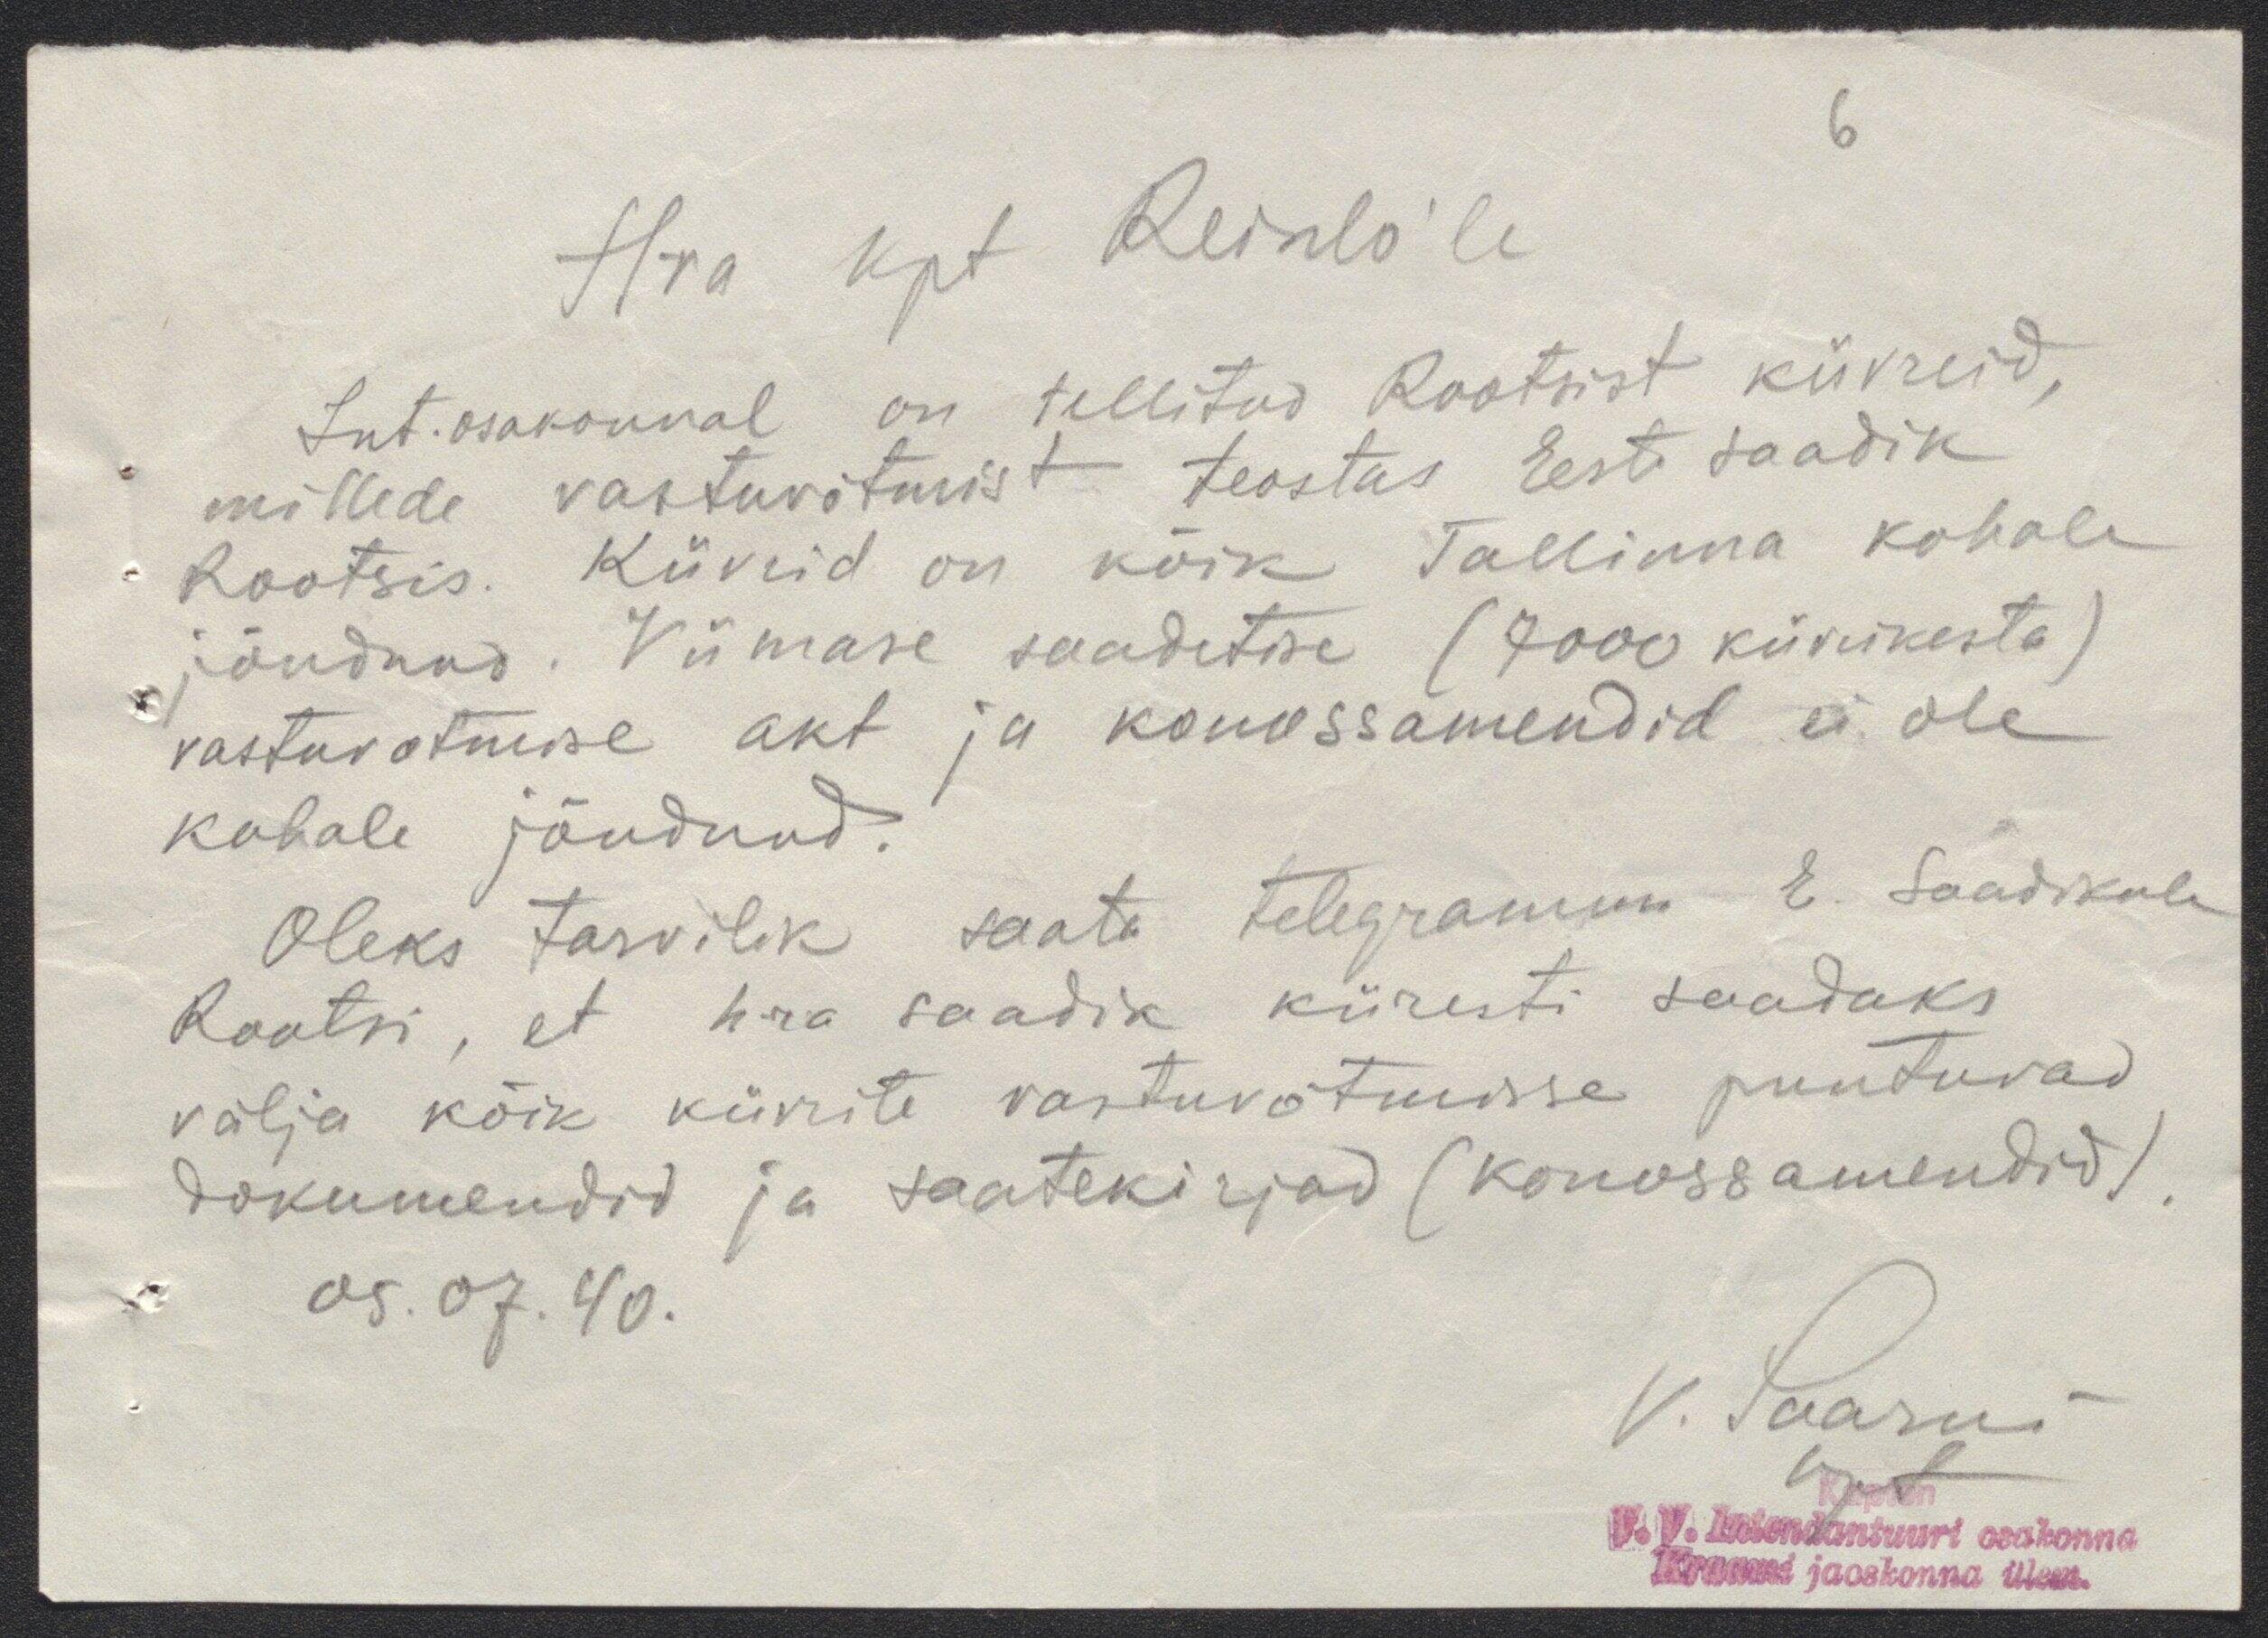 6
Hra kpt Reinlo'le
Int. osakonnal on tellitud Rootsist kiivreid,
millede vastuvõtmist teostas Eesti saadik
Rootsis. Kiivrid on kõik Tallinna kohale
jõudnud. Viimase saadetise (7000 kiivrikesta)
vastuvotmise akt ja konossamendid ei ole
kohale jõudnud.
Oleks tarvilik saata telegramm E. Saadikule
Rootsi, et hra saadik kiiresti saadaks
välja kõik kiivrite vastuvõtmisse puutuvad
dokumendid ja saatekirjad (konossamendid).
05.07.40.
V. kpt
Kapten
V. V. Intendantuuri osakonna
jaoskonna ülem.